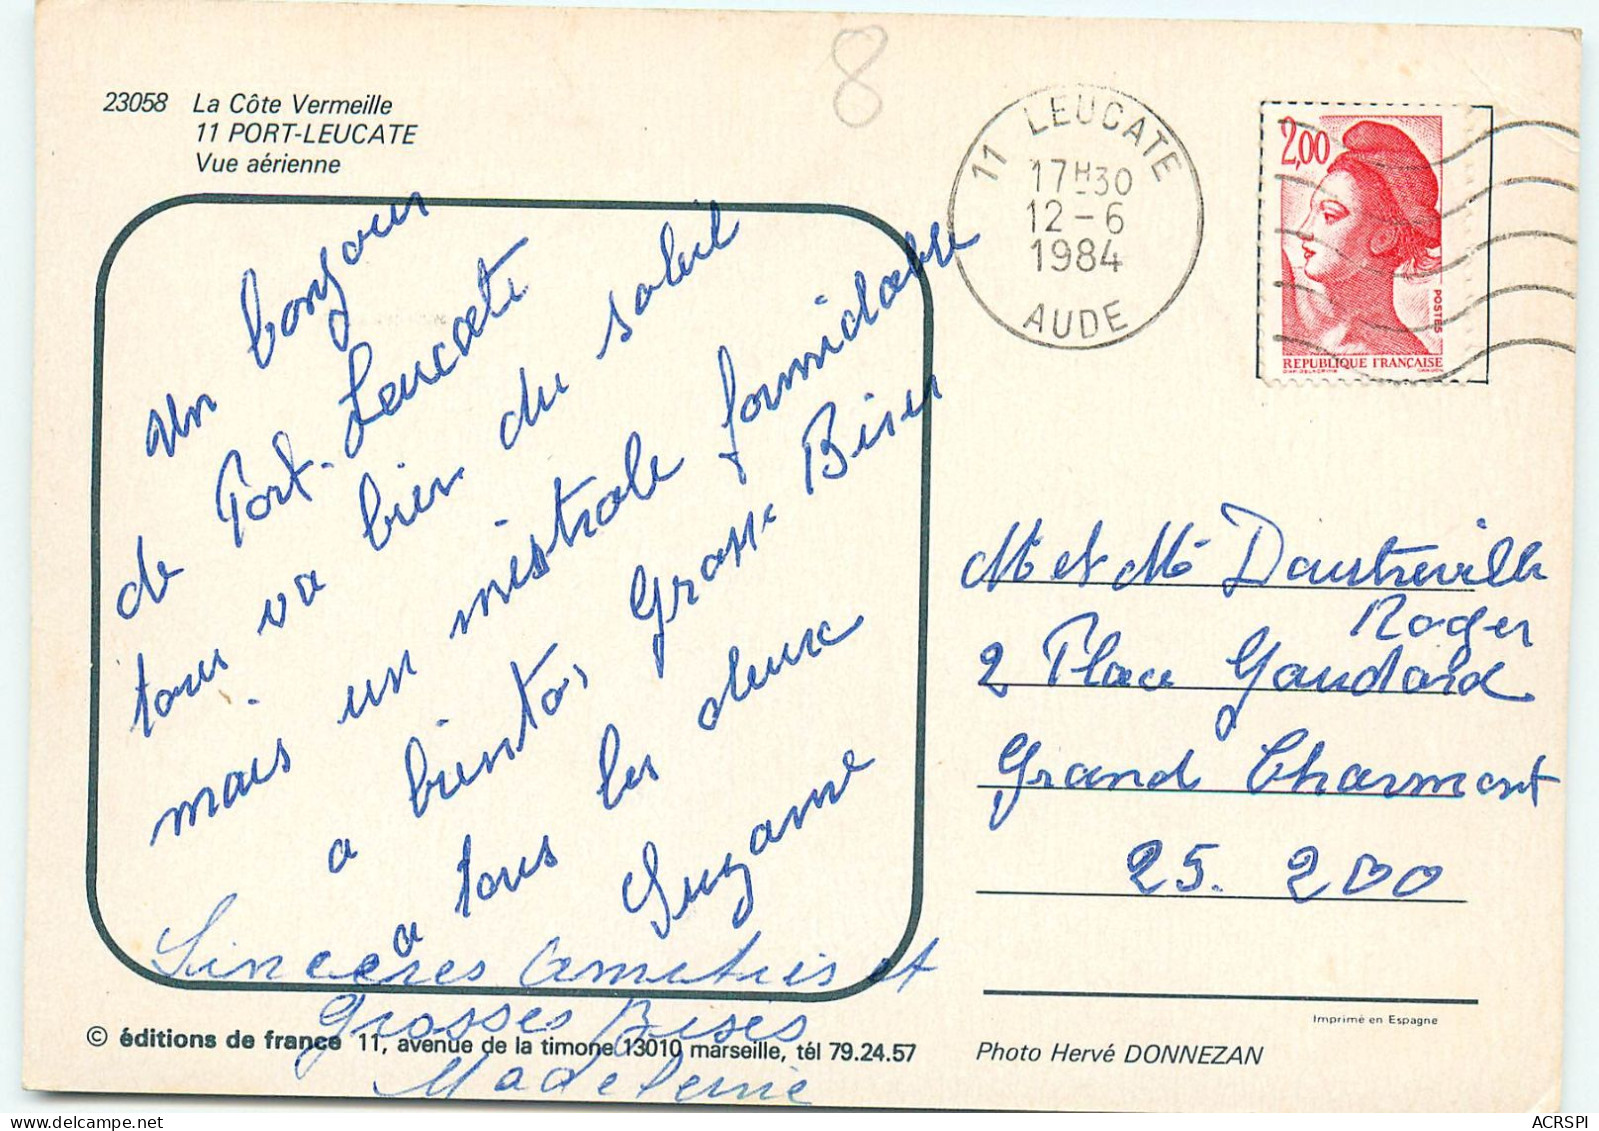 8
23058 La Côte Vermeille
11 PORT-LEUCATE
Vue aérienne
11 LEUCATE
17H30
12-6
1984
AUDE
2,00
POSTES
REPUBLIQUE FRANÇAISE
Un bonjour
de Port-Leucate
tous va bien du soleil
mais un mistrale formidable
a bientot, Grosse Bises
a tous les deux
Suzanne
Sinceres amitiés et
Grosses Bises
Madeleine
Mr et Me Dautreville
Roger
2 Place Gaudard
Grand Charmont
25.200
© éditions de france 11, avenue de la timone 13010 marseille, tél 79.24.57
Imprimé en Espagne
Photo Hervé DONNEZAN
ACRSPI